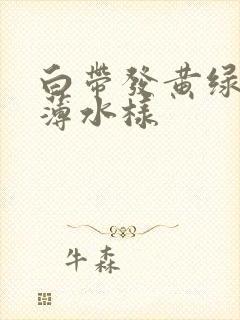 白帶發黄绿
薄水様
牛森